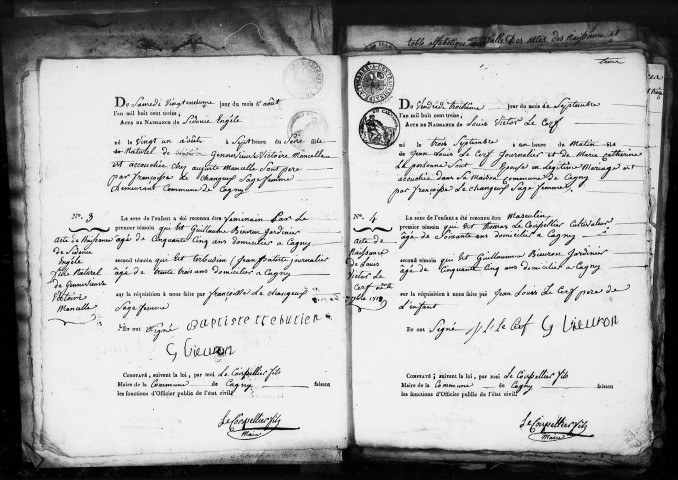 table alfabétique des actes des Naissances et
Du Samedi Vingt uneieme jour du mois d'août
l'an mil huit cent treize;
ACTE DE NAISSANCE de Sidonie Engéle
né le Vingt un août à Sept heure du Soire fille
Naturel de Genneviewe Victoire Manselle
est accouchée chez auguste Manselle Sont pere
par françoise le changeux Sage femme
demeurant Commune de Cagny
N°. 3
acte de Naissance
de Sidonie
Engéle
fille Naturel
de Gennevieuve
Victoire
Manselle
Le sexe de l'enfant a été reconnu être feminain Par Le
premier témoin qui est Guillaume Bieuron Jardinier
âgé de Cinquante Cinq ans domicilier a Cagny
second témoin qui est terbutien Jean Batiste journalier
âgé de trente trois ans domicilier a Cagny
sur la réquisition à nous faite par françoise Le changeux
Sage femme
Et ont Signé Baptiste trebutien
G Vieuron
CONSTATÉ, suivant la loi, par moi Le Corpellier fils
Maire de la Commune de Cagny faisant
les fonctions d'Officier public de l'état civil.
Le Corpellier fils
Maire
Du Vendredi troisième jour du mois de Septembre
l'an mil huit cent treize;
ACTE DE NAISSANCE de Louis Victor Le Cerf
né le trois Septembre à un heure du Matin fils
de Jean Louis Le Cerf Journalier et de Marie Catherine
en Légitime Mariage est
accouchée dans sa Maison commune de Cagny
par françoise Le changeux Sage femme
N°. 4
Acte de
Naissance
de Louis
Victor Le
Cerf
Le sexe de l'enfant a été reconnu être Masculin
premier témoin qui est Thomas Le Corpellier Cultivateur
âgé de Soixante ans domicilier a Cagny
second témoin qui est Guillaume Bieuron Jardinier
âgé de Cinquante Cinq ans domicilier a Cagny
sur la réquisition à nous faite par Jean Louis Le Cerf pere de
L'enfant
Et ont Signé J L le Cerf G Vieuron
CONSTATÉ, suivant la loi, par moi Le Corpellier fils
Maire de la Commune de Cagny faisant
les fonctions d'Officier public de l'état civil.
Le Corpellier fils
Maire